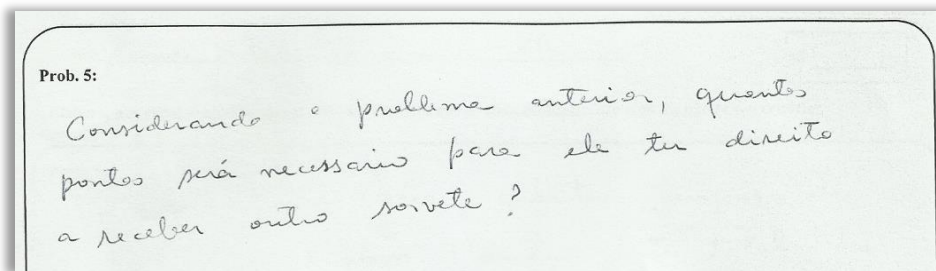 Prob. 5:
Considerando o problema anterior, quantos
pontos será necessario para ele ter direito
a receber outro sorvete?